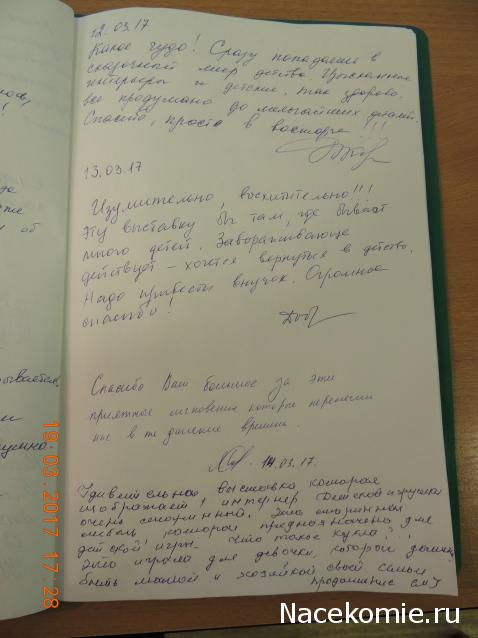 12.03.17
Какое чудо! Сразу попадаешь в
сказочный мир детства. Изысканные
интерьеры и детские, так здорово.
все продумано до мельчайших деталей.
Спасибо, просто в восторге!!!
13.03.17
Изумительно, восхитительно!!!
Эту выставку бы там, где бывает
много детей. Завораживающе
действует – хочется вернуться в детство.
Надо привести внучек. Огромное
спасибо!
Спасибо Вам большое за эти
приятные мгновения которые перенесли
нас в те далекие времена.
14.03.17.
Удивительная выставка которая
изображает, интерьер Детской игрушки
очень старинный. Это старинная
мебель которая предназначена для
детской игры. Что такое кукла?
Это игрушка для девочки, которой должна
быть мамой и хозяйкой своей семьи
продолжение см
об
19.03.2017 17:28
Nacekomie.ru